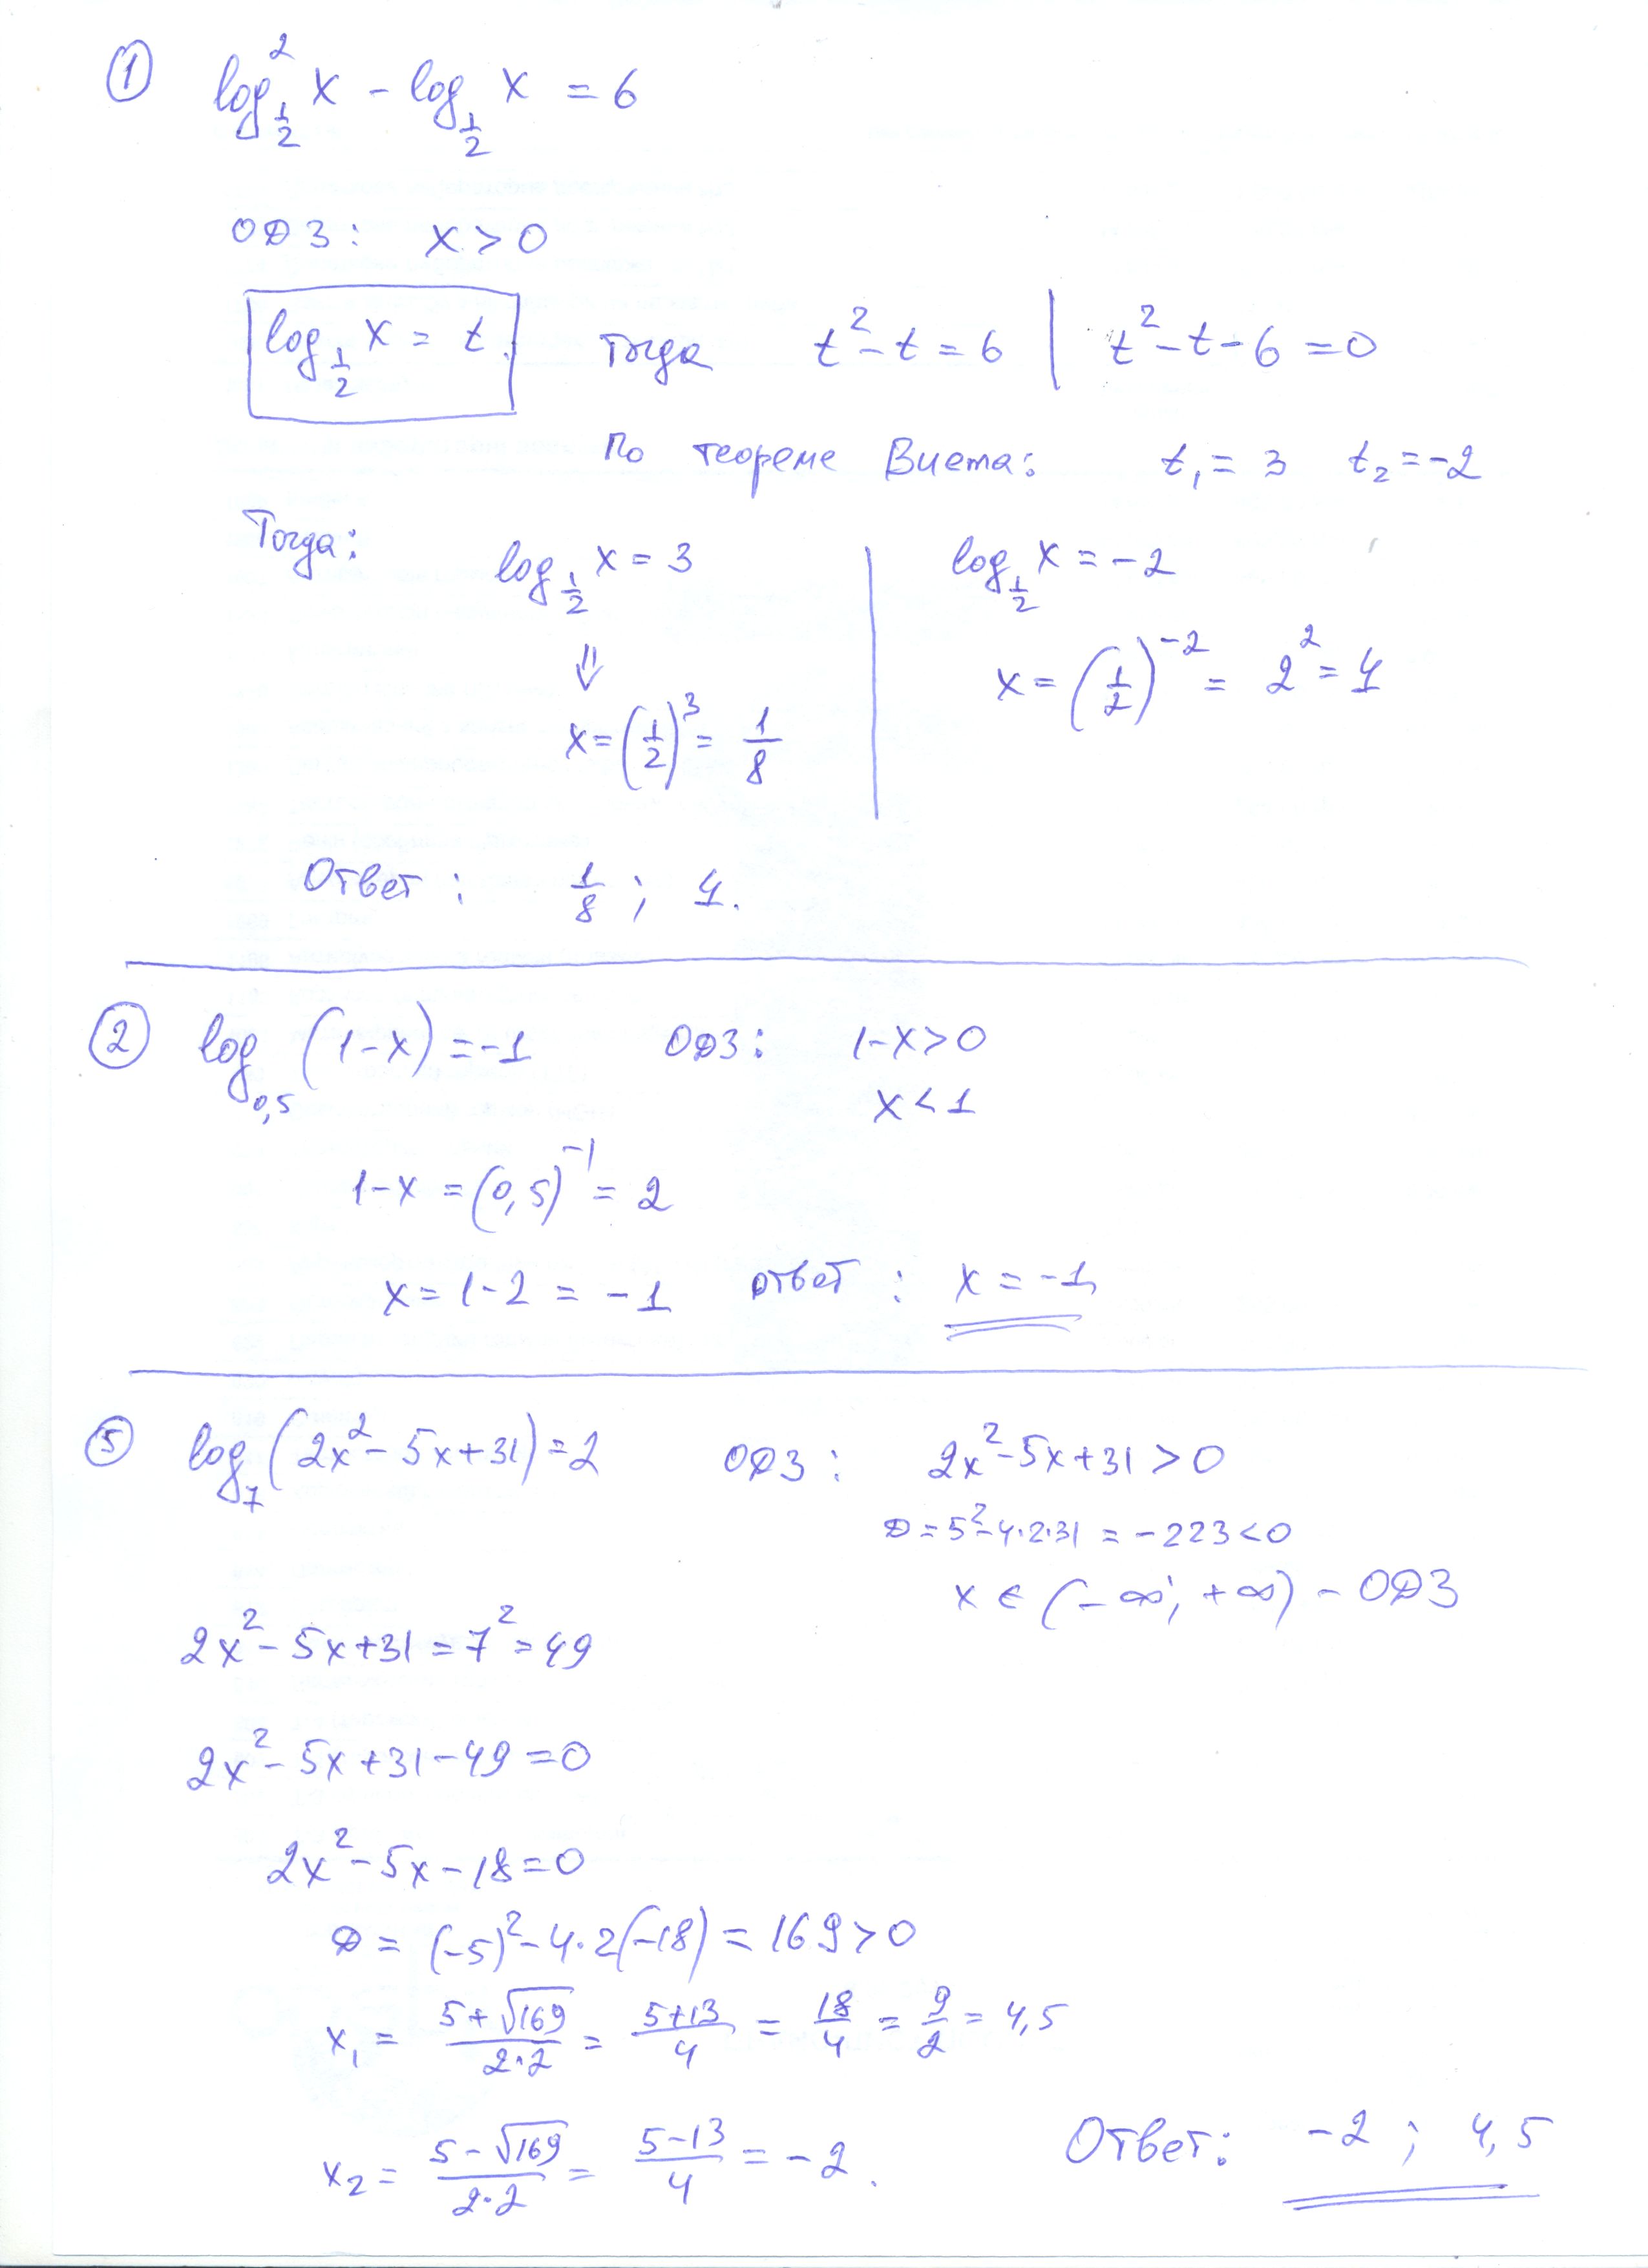 ① log²_{1/2} x - log_{1/2} x = 6
ОДЗ: x > 0
log_{1/2} x = t. Тогда t² - t = 6 | t² - t - 6 = 0
По теореме Виета: t₁ = 3 t₂ = -2
Тогда: log_{1/2} x = 3 | log_{1/2} x = -2
⇓
x = (1/2)³ = 1/8 | x = (1/2)⁻² = 2² = 4
Ответ: 1/8 ; 4.
② log_{0,5} (1-x) = -1 ОДЗ: 1-x > 0
x < 1
1-x = (0,5)⁻¹ = 2
x = 1-2 = -1 ответ: x = -1
⑤ log₇ (2x² - 5x + 31) = 2 ОДЗ: 2x² - 5x + 31 > 0
D = 5² - 4·2·31 = -223 < 0
x ∈ (-∞; +∞) - ОДЗ
2x² - 5x + 31 = 7² = 49
2x² - 5x + 31 - 49 = 0
2x² - 5x - 18 = 0
D = (-5)² - 4·2(-18) = 169 > 0
x₁ = (5+√169)/(2·2) = (5+13)/4 = 18/4 = 9/2 = 4,5
x₂ = (5-√169)/(2·2) = (5-13)/4 = -2. Ответ: -2 ; 4,5